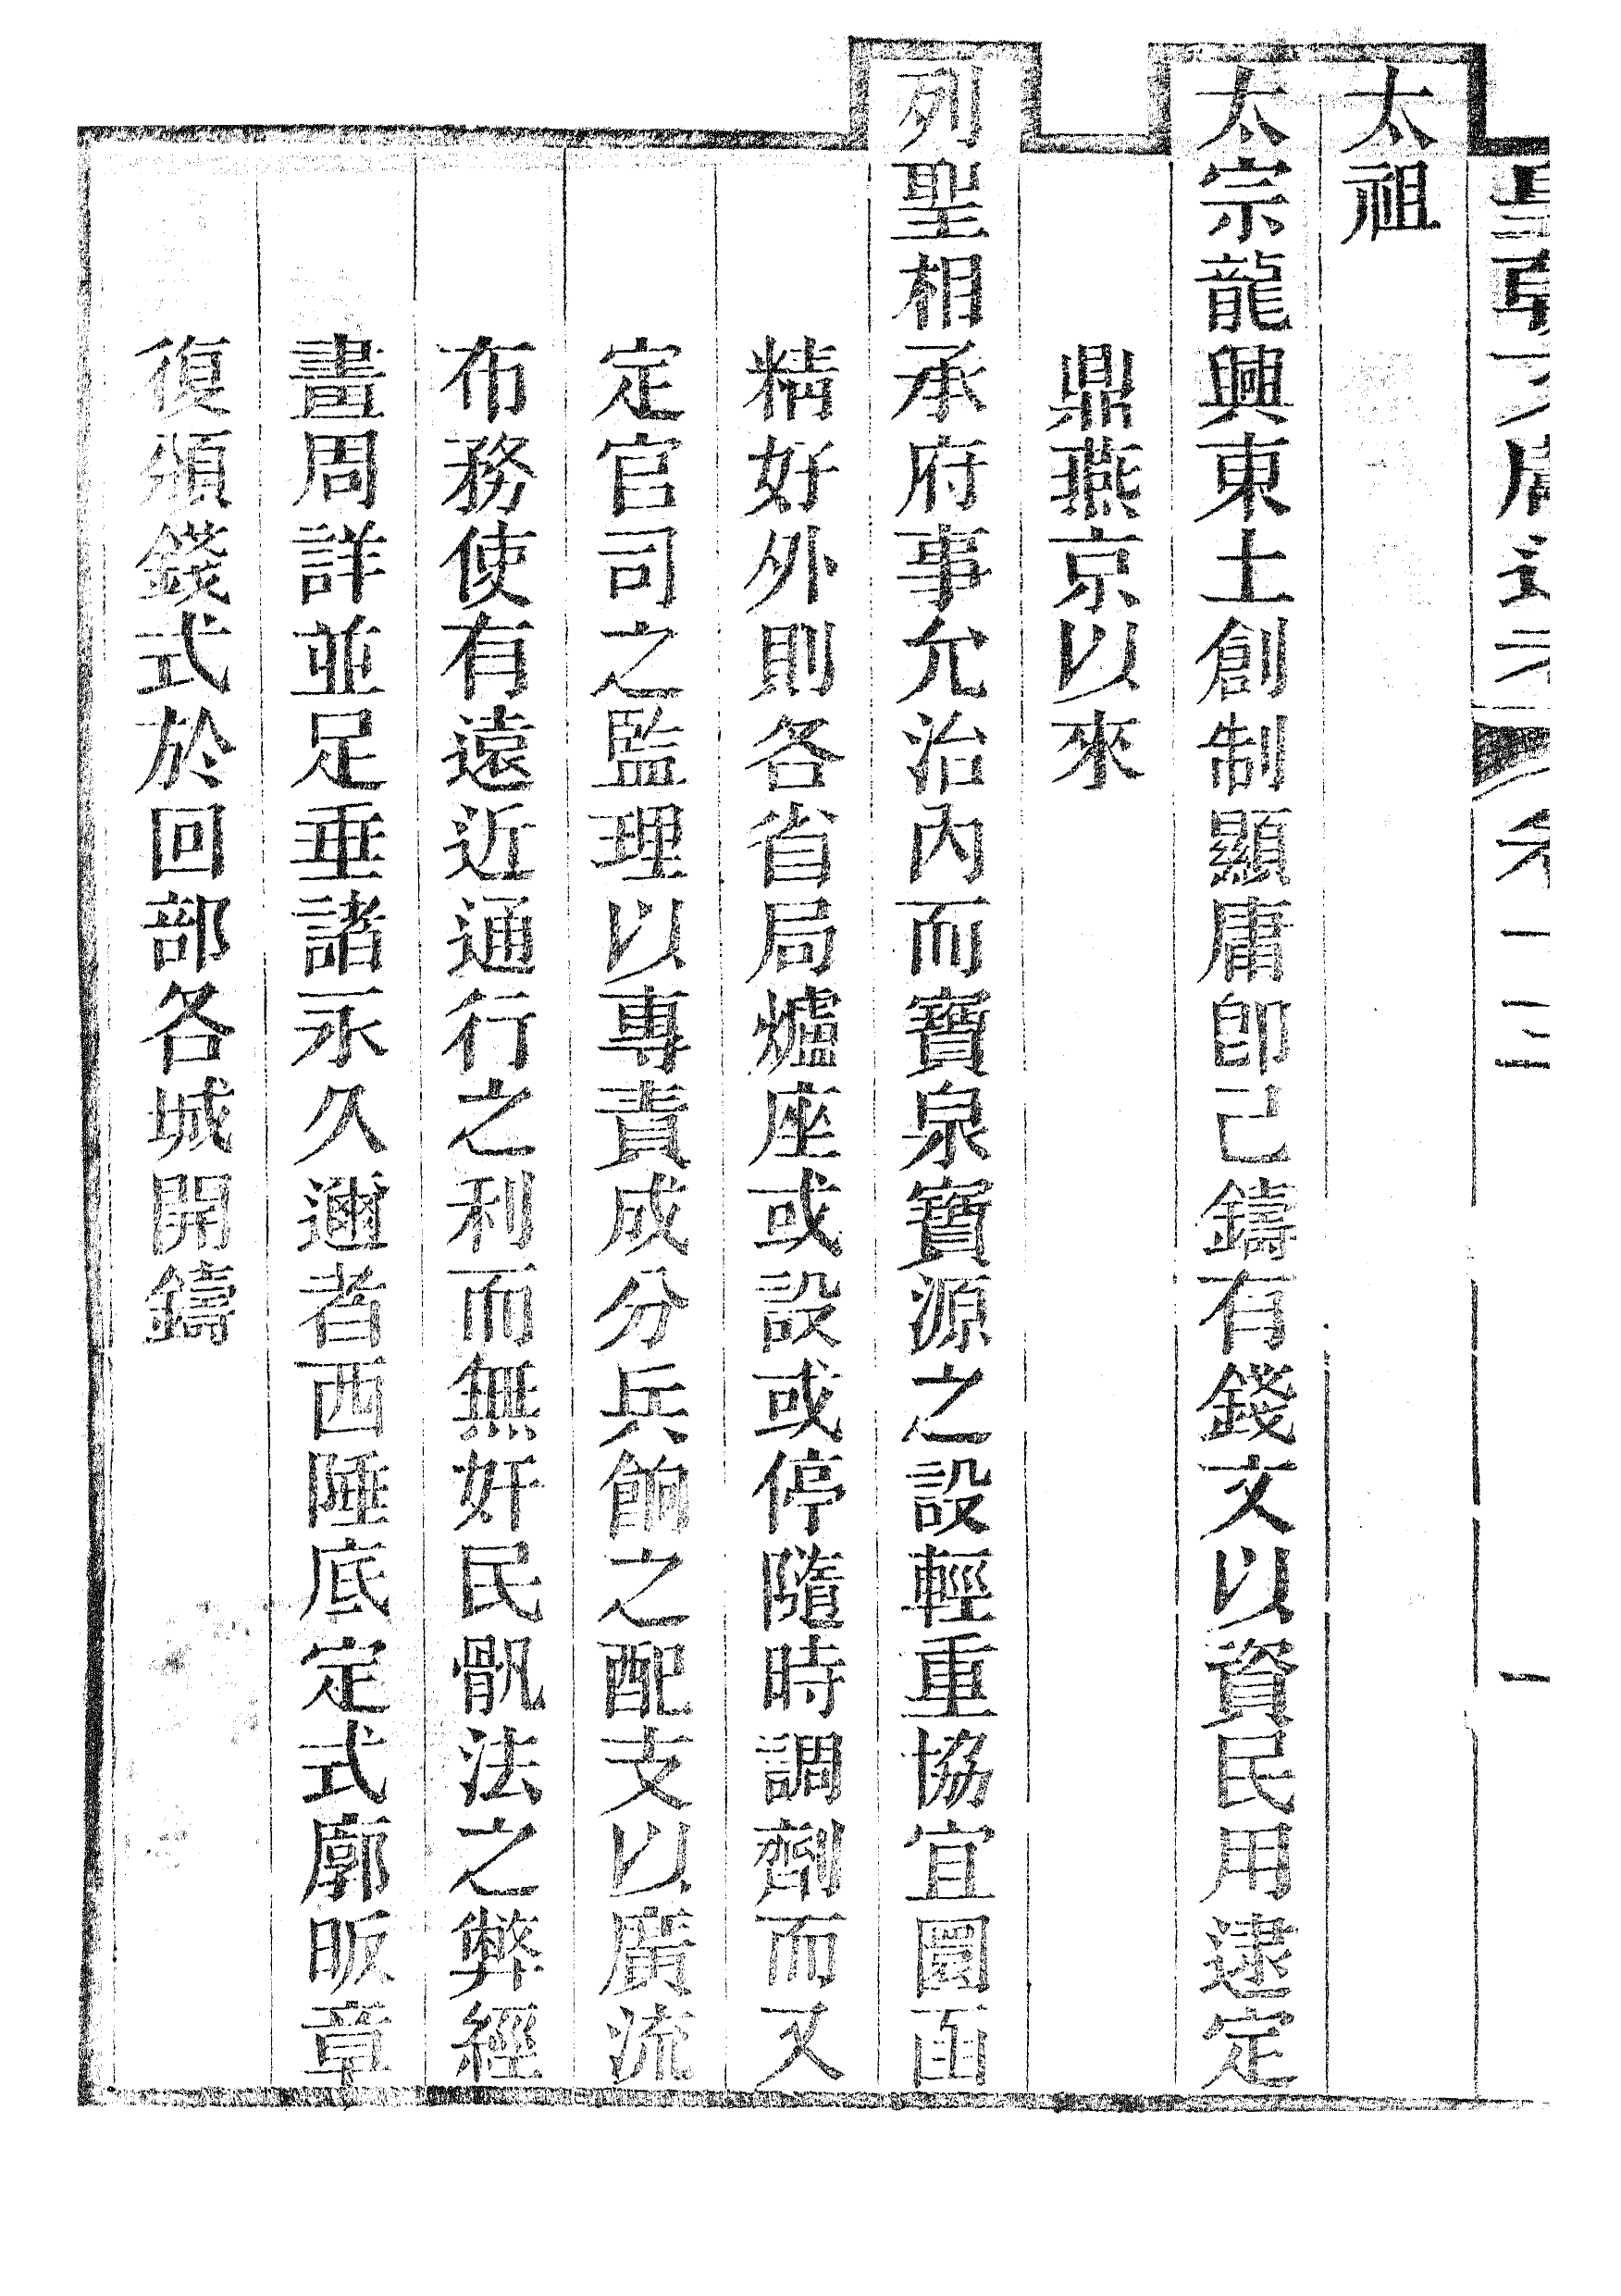 太祖
太宗龍興東土創制顯庸卽已鑄有錢文以資民用逮定
鼎燕京以來
列聖相承府事允治內而寶泉寶源之設輕重協宜圜函
精好外則各省局爐座或設或停隨時調劑而又
定官司之監理以專責成分兵餉之配支以廣流
布務使有遠近通行之利而無奸民骫法之弊經
畫周詳並足垂諸永久邇者西陲底定式廓昄章
復頒錢式於回部各城開鑄